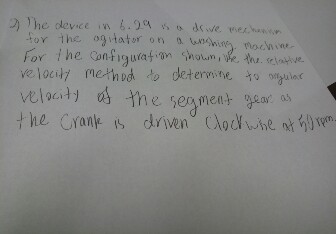 2) The device in 6.29 is a drive mechanism
for the agitator on a washing machine
For the configuration shown, use the relative
velocity method to determine to angular
velocity of the segment gear as
the Crank is driven Clockwise at 50 rpm.